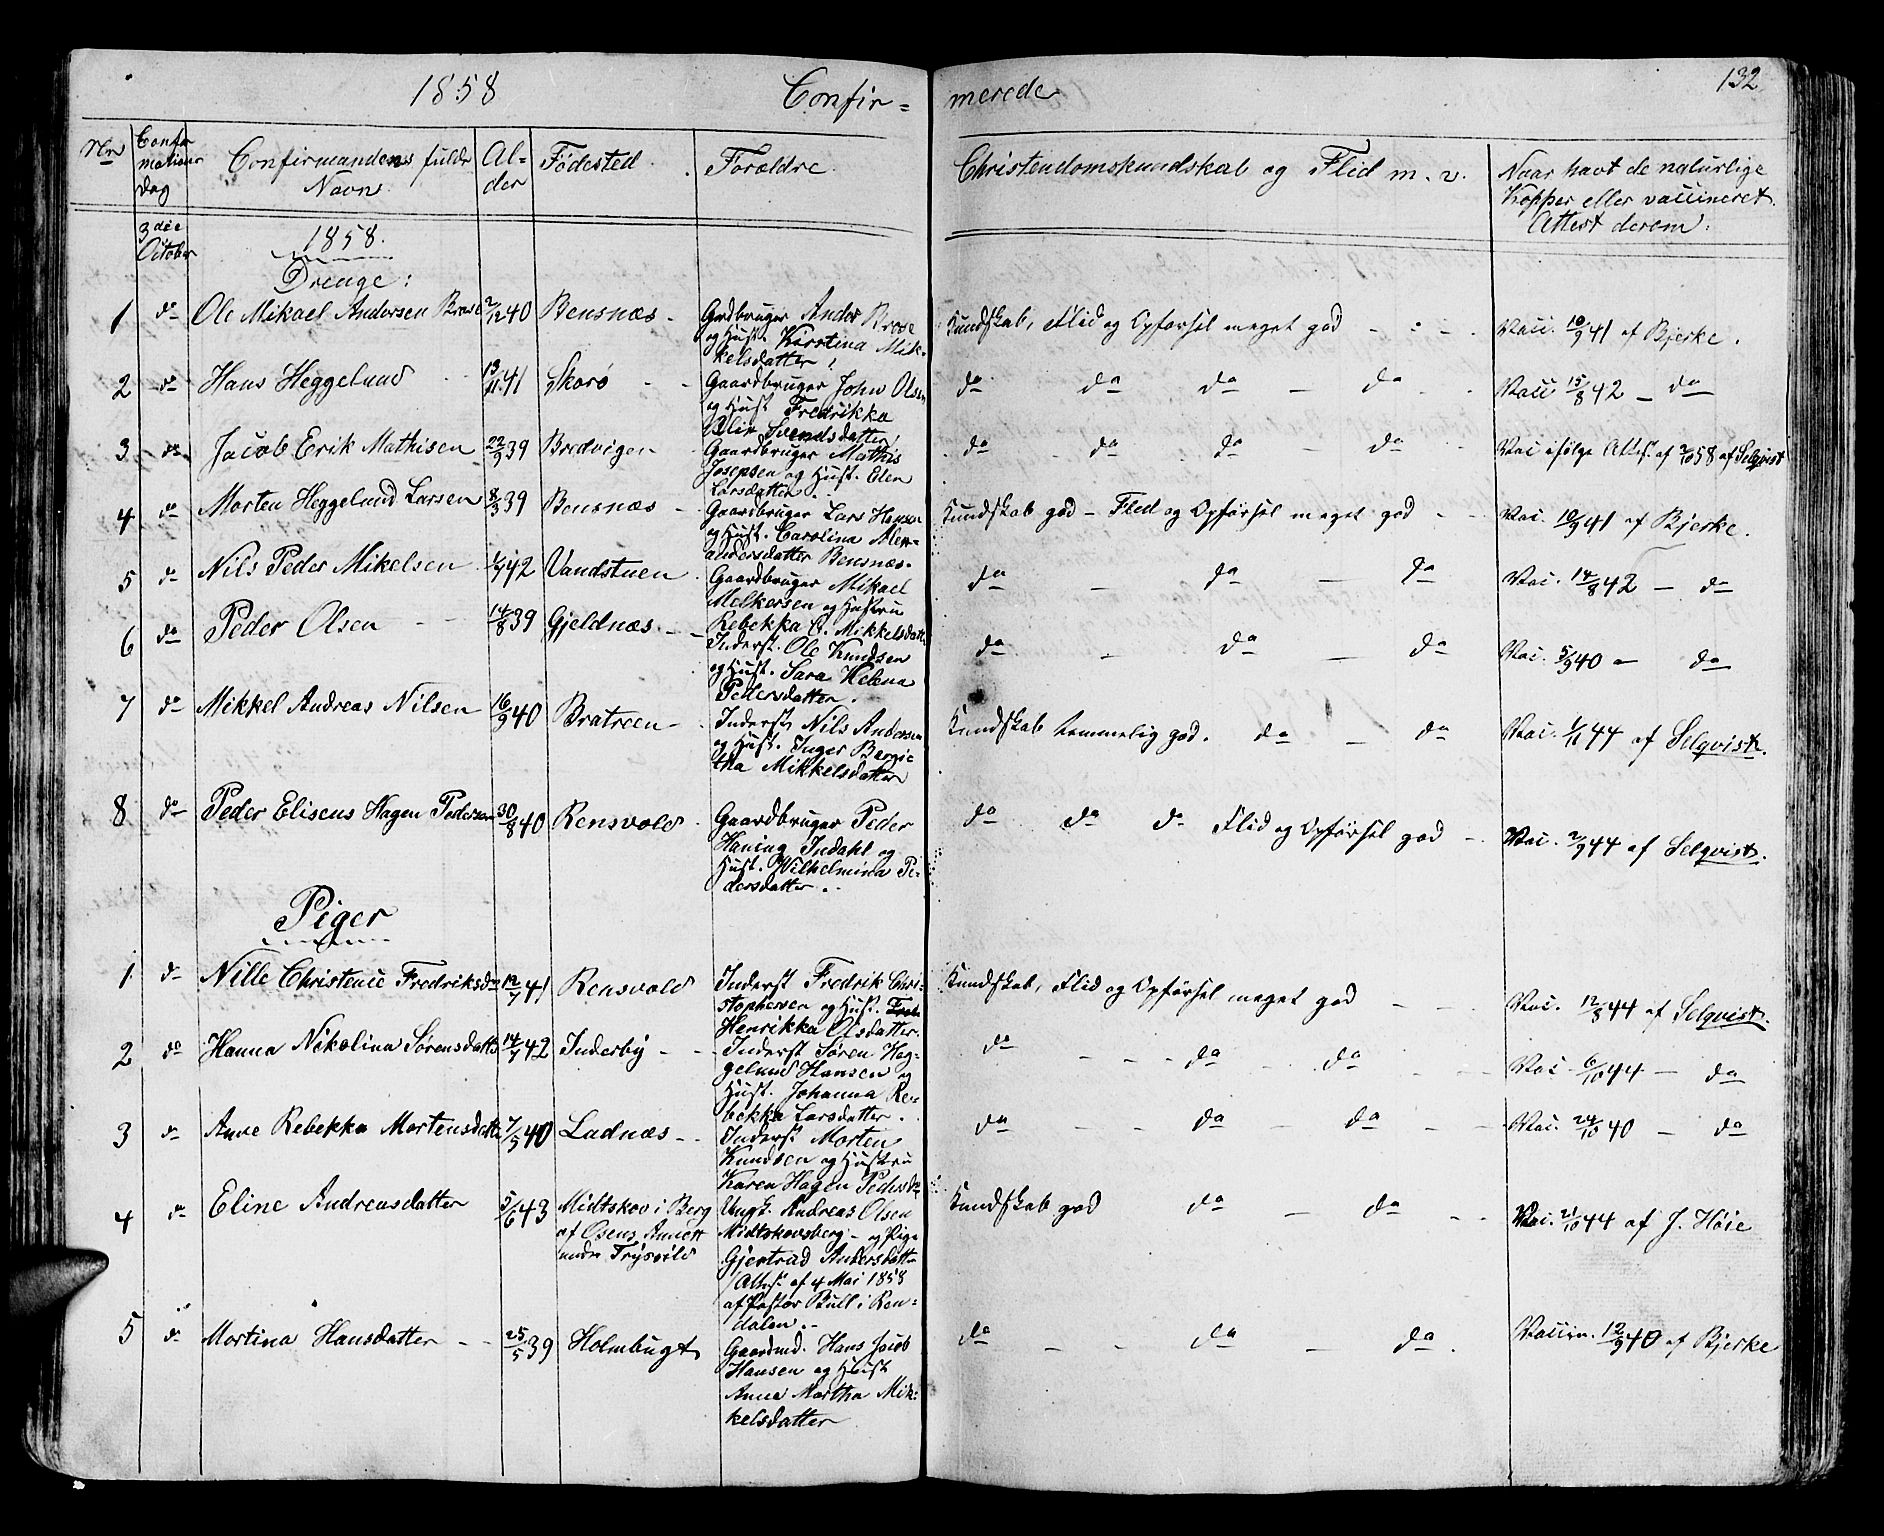 1858 Confir= merede 132
Nr Confirmations Dag Confirmandens fulde Navn Alder Fødested Forældre Christendomskundskab og Flid m. v. Naar havt de naturlige Kopper eller vaccineret. Attest derom.
3die October
1858.
Drenge:
1 do Ole Mikael Andersen Brose 2/12 40 Bensnæs - Grdbruger Anders Brose og Hust. Kerstina Mikkelsdatter Kundskab, Flid og Opførsel meget god Vacc. 10/9 41 af Bjerke.
2 do Hans Heggelund 13/11 41 Skorø - Gaardbruger John Olsen og Hust Fredrikka Svendsdatter do do do - do Vacc 15/8 42 - do
3 do Jacob Erik Mathisen 22/9 39 Bredvigen Gaardbruger Mathis Josepsen og Hust. Elen Larsdatter do do do do Vac ifølge Attest af 2/10 58 af Selqvist
4 do Morten Heggelund Larsen 8/3 39 Bensnæs - Gaardbruger Lars Hansen og Hust. Carolina Alexandersdatter Bensnæs. Kundskab god - Flid og Opførsel meget god Vac. 10/9 41 af Bjerke.
5 do Nils Peder Mikelsen 1/7 42 Vandstuen Gaardbruger Mikael Melkersen og Hustru Rebekka C. Mikkelsdatter do - do - do Vac. 14/8 42 - do
6 do Peder Olsen 14/8 39 Gjeldnæs - Inderst. Ole Knudsen og Hust. Sara Helena Pedersdatter. do - do - do Vac. 5/9 40 - do
7 do Mikkel Andreas Nilsen 16/9 40 Bratreen - Inderst Nils Andersen og Hust. Inger Bergitha Mikkelsdatter Kundskab temmelig god. do - do Vac. 1/11 44 af Selqvist.
8 do Peder Eliseus Hagen Pedersen 30/8 40 Rensvold Gaardbruger Peder Haning Indahl og Hust. Wilhelmina Pedersdatter. do do do Flid og Opførsel god - Vac. 2/9 44 af Selqvist.
Piger
1 do Nille Christence Fredriksdr 12/7 41 Rensvold Inderst Fredrik Christophersen og Hust. Henrikka Olsdatter Kundskab, Flid og Opførsel meget god Vac. 12/8 44 af Selqvist.
2 do Hanna Nikolina Sørensdattr 14/7 42 Inderby - - Inderst Søren Heggelund Hansen og Hust. Johanna Rebekka Larsdatter. do - - - do - do Vac. 6/10 44 - do
3 do Anne Rebekka Mortensdattr 7/5 40 Ladnæs - - Inderst Morten Knudsen og Hustru Karen Hagen Pedersdr do - - do - do Vac. 24/10 40 - do
4 do Eline Andreasdatter 5/6 43 Midtskov i Berg af Osens Annex under Trysild Ungk. Andreas Olsen Midtskovsberg - og Pige Gjertrud Andersdatter (Attest af 4 Mai 1858 af Pastor Bull i Rendalen. Kundskab god do - do - - Vac. 21/10 44 af J. Høie
5 do Martina Hansdatter - - 25/5 39 Holmbugt Gaardmd. Hans Jacob Hansen og Hust Anne Martha Mikkelsdatter do - - do - do. Vaccin. 12/9 40 af Bjerke